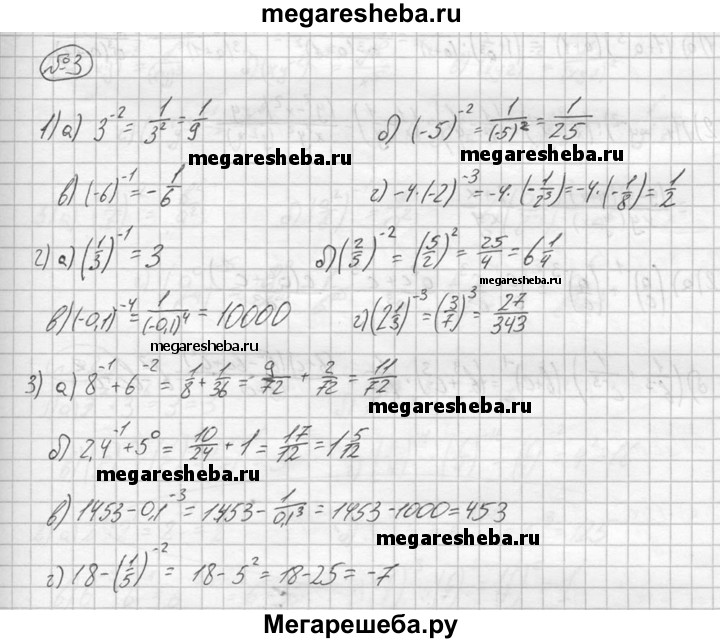 megaresheba.ru
№3
1) а) 3⁻² = 1/3² = 1/9 б) (-5)⁻² = 1/(-5)² = 1/25
megaresheba.ru megaresheba.ru
в) (-6)⁻¹ = -1/6 г) -4·(-2)⁻³ = -4·(-1/2³) = -4·(-1/8) = 1/2
2) а) (1/3)⁻¹ = 3 б) (2/5)⁻² = (5/2)² = 25/4 = 6 1/4
megaresheba.ru
в) (-0,1)⁻⁴ = 1/(-0,1)⁴ = 10000 г) (2 1/3)⁻³ = (3/7)³ = 27/343
megaresheba.ru
3) а) 8⁻¹ + 6⁻² = 1/8 + 1/36 = 9/72 + 2/72 = 11/72
megaresheba.ru
б) 2,4⁻¹ + 5⁰ = 10/24 + 1 = 17/12 = 1 5/12
megaresheba.ru
в) 1453 - 0,1⁻³ = 1453 - 1/0,1³ = 1453 - 1000 = 453
megaresheba.ru
г) 18 - (1/5)⁻² = 18 - 5² = 18 - 25 = -7
Мегарешеба.ру